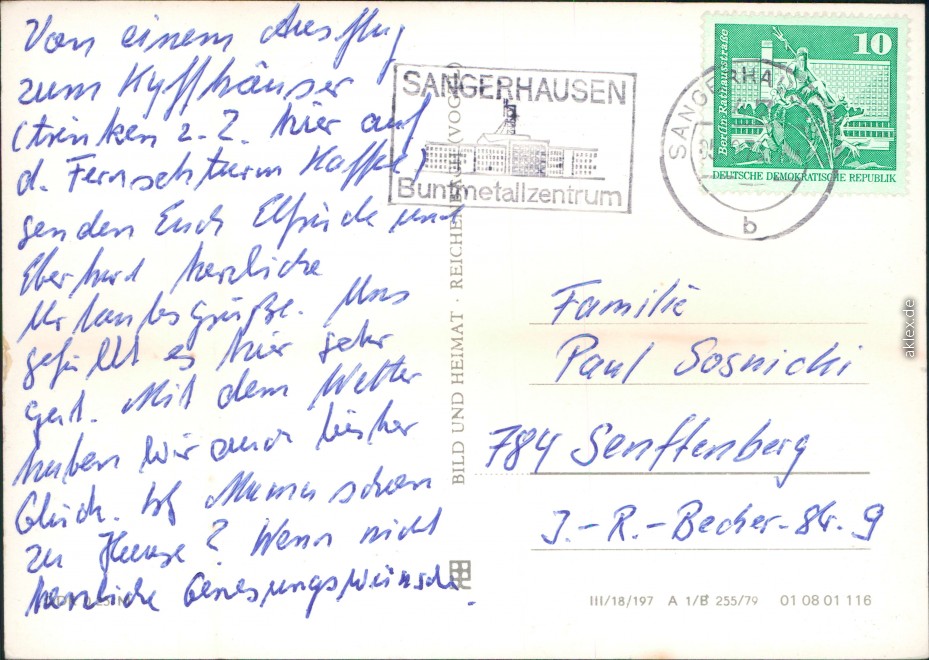 Von einem Ausflug
zum Kyffhäuser
(trinken z. Z. hier auf
d. Fernsehturm Kaffee)
senden Euch Elfriede und
Eberhard herzliche
Urlaubsgrüße. Uns
gefällt es hier sehr
gut. Mit dem Wetter
haben wir auch bisher
Glück. Ist Mama schon
zu Hause? Wenn nicht
herzliche Genesungswünsche.
SANGERHAUSEN
Buntmetallzentrum
SANGERHA
b
10
Berlin, Rathausstraße
DEUTSCHE DEMOKRATISCHE REPUBLIK
BILD UND HEIMAT · REICHENBACH (VOGTL)
Familie
Paul Sosnicki
784 Senftenberg
J.-R.-Becher-Str. 9
III/18/197 A 1/B 255/79 01 08 01 116
aklex.de